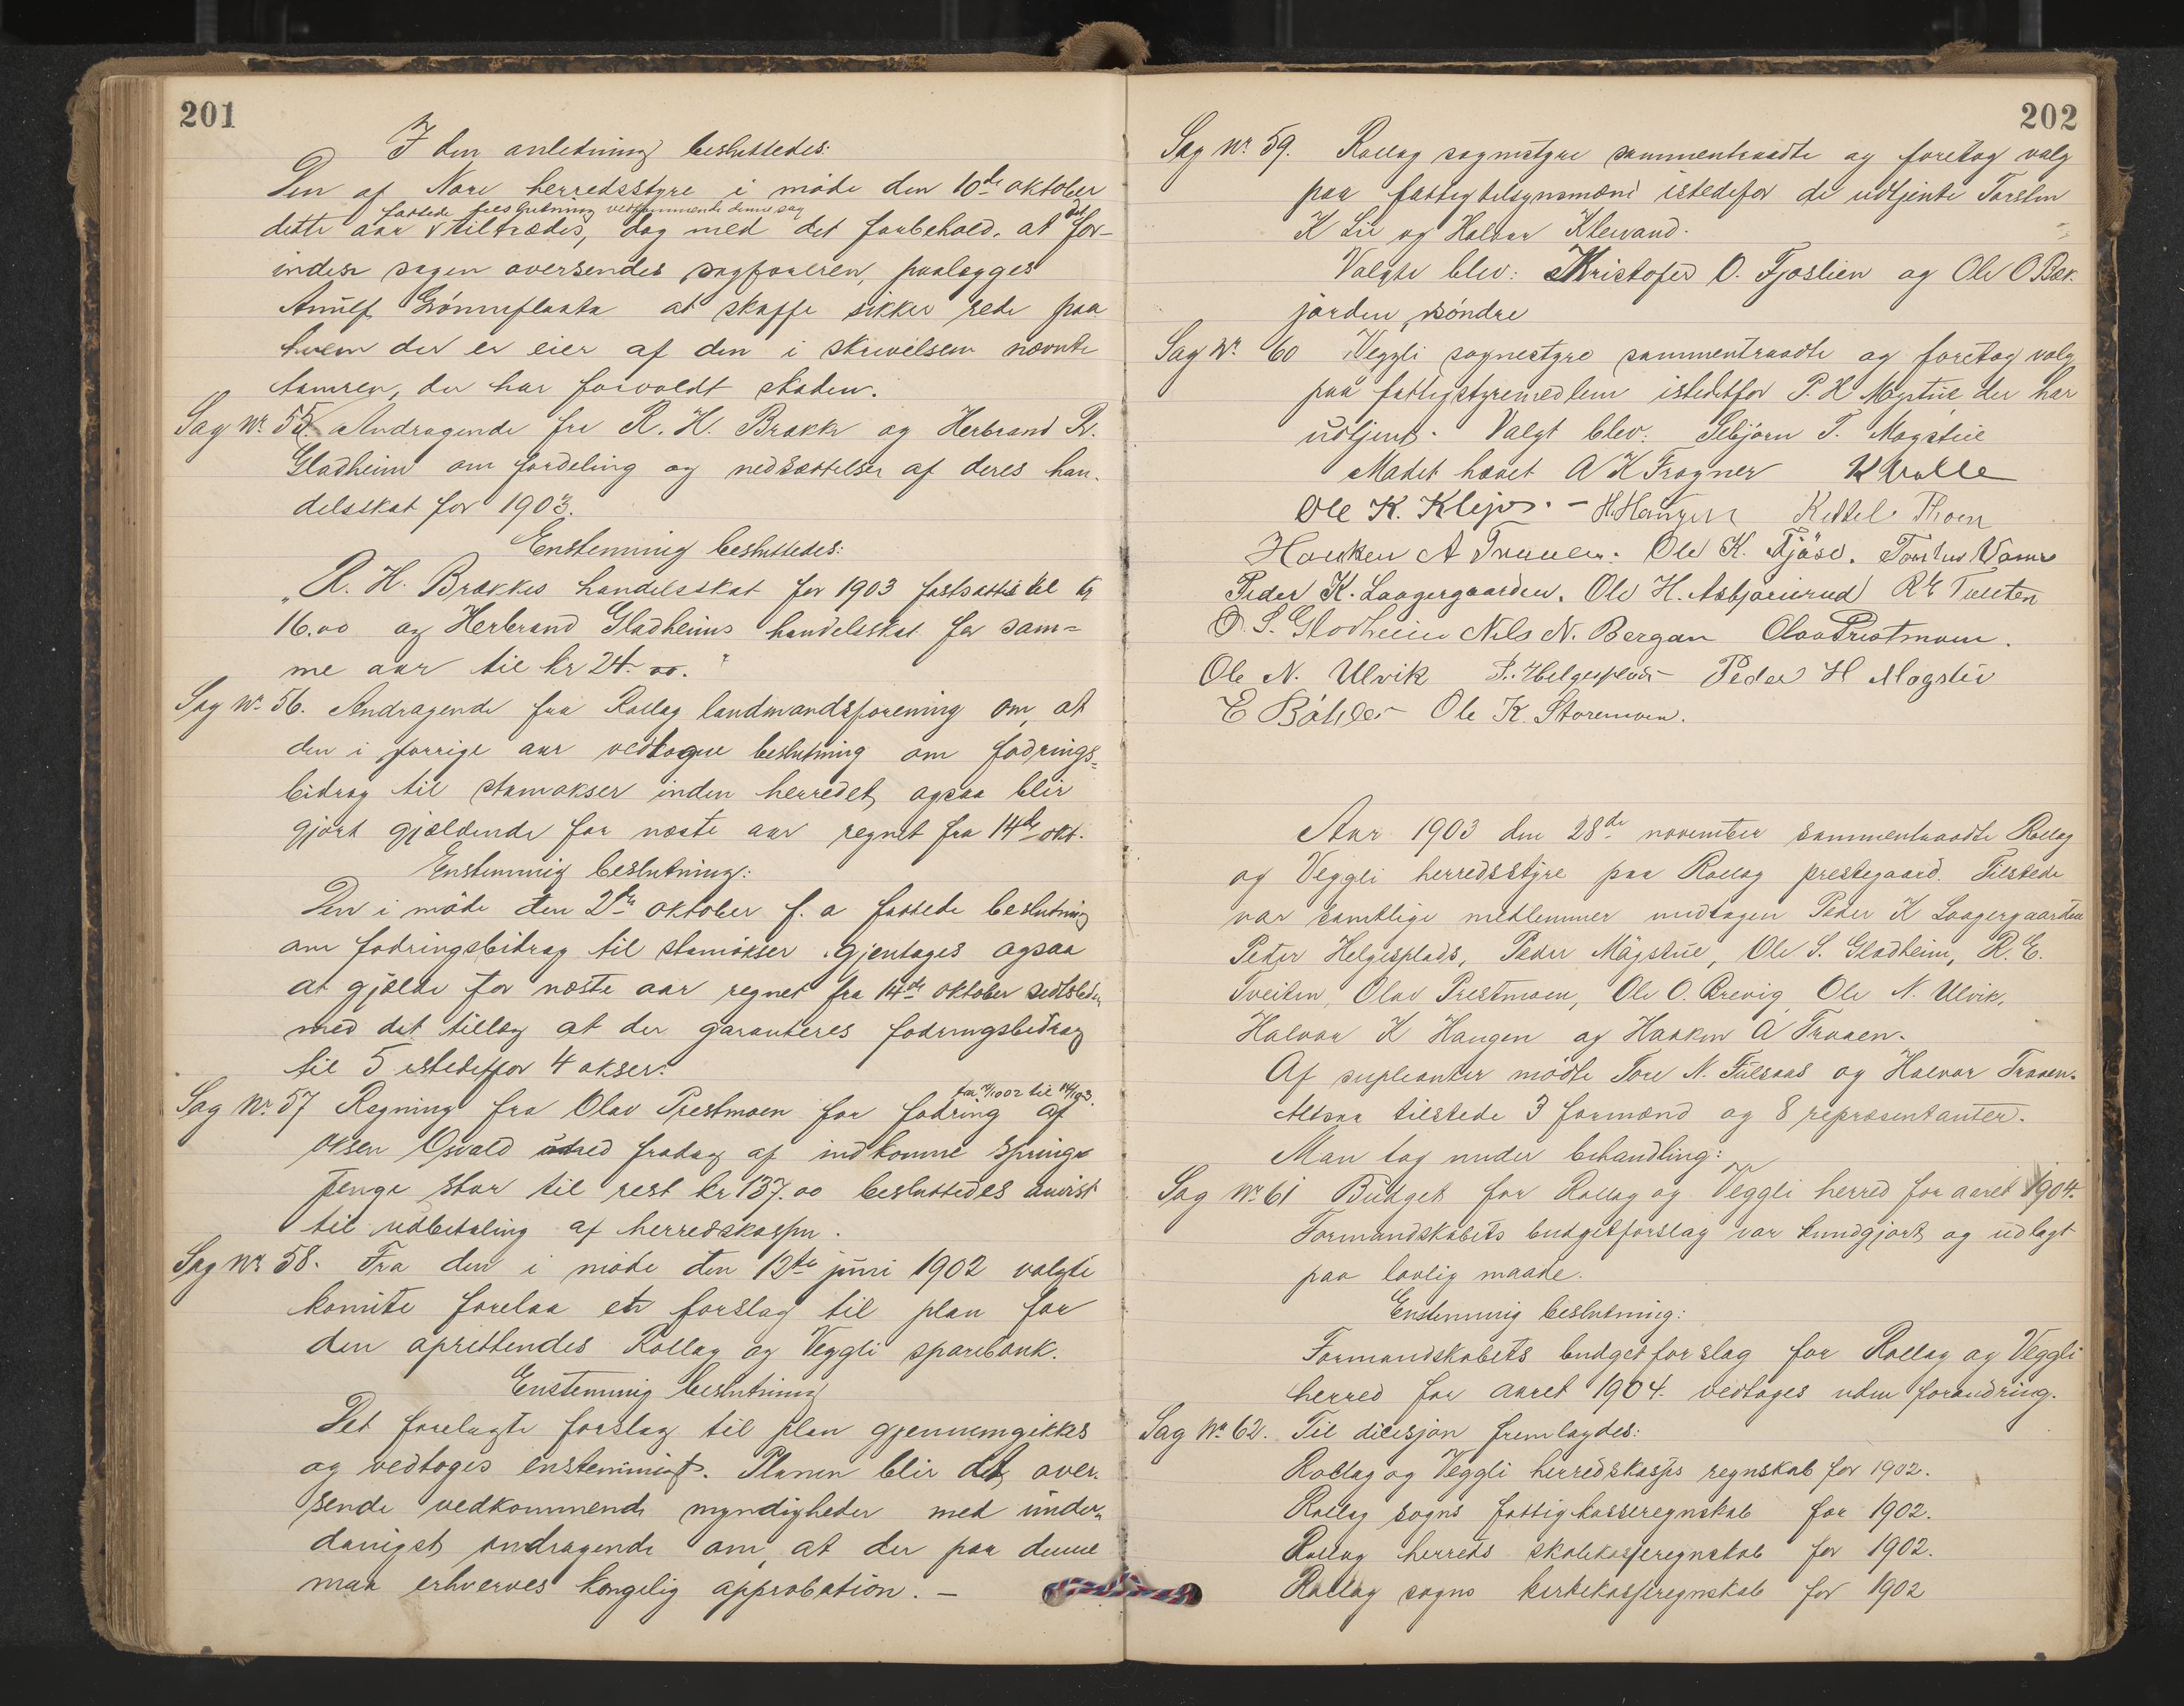 201
I den anledning besluttedes:
Den af Nore herredsstyre i møde den 10de oktober
fattede beslutning vedkommende denne sag
dette aar tiltrædes, dog med det forbehold, at det for-
inden sagen oversendes sagføreren, paalægges
Anulf Grønneflaata at skaffe sikker rede paa
hvem der er eier af den i skrivelsen nævnte
damren, der har forvoldt skaden.
Sag Nr. 55. Andragende fra R. H. Brække og Herbrand R.
Gladheim om fordeling og nedsættelse af deres han-
delsskat for 1903.
Enstemmig besluttedes:
"R. H. Brækkes handelsskat for 1903 fastsættes til kr
16.00 og Herbrand Gladheims handelsskat for sam-
me aar til kr 24.00."
Sag Nr. 56. Andragende fra Rollag landmandsforening om, at
den i forrige aar vedtagne beslutning om fodrings-
bidrag til stamokser inden herredet, ogsaa blir
gjort gjældende for næste aar regnet fra 14de okt.
Enstemmig beslutning:
Den i møde den 2den oktober f. a fattede beslutning
om fodringsbidrag til stamokser gjentages ogsaa
at gjælde for næste aar regnet fra 14de oktober sidstleden
med det tillæg at der garanteres fodringsbidrag
til 5 istedetfor 4 okser.
fra 14/10 02 til 14/10 3.
Sag Nr. 57 Regning fra Olav Prestmoen for fodring af
oksen Osvald med fradrag af indkomne springe
penge stor til rest kr 137.00 besluttedes anvist
til udbetaling af herredskassen.
Sag Nr 58. Fra den i møde den 12te juni 1902 valgte
komite forelaa et forslag til plan for
den oprettendes Rollag og Veggli sparebank.
Enstemmig beslutning
Det forelagte forslag til plan gjennemgikkes
og vedtoges enstemmigt. Planen blir at over-
sende vedkommende myndigheder med under-
danigst andragende om, at der paa denne
maa erhverves kongelig approbation. –
202
Sag Nr. 59. Rollag sognestyre sammentraadte og foretog valg
paa fattigtilsynsmænd istedefor de udtjente Torsten
K Lie og Halvor Kleivand.
Valgte blev: Kristofer O. Fjøslien og Ole O. Bæk-
jorden, søndre
Sag Nr. 60 Veggli sognestyre sammentraadte og foretog valg
paa fattigstyremedlem istedetfor P. H Møgstue der har
udtjent. Valgt blev: Sebjørn T. Mogstue
Mødet hævet A K Frogner K Wolle
Ole K. Klejos. – H. Haugen Kittel Thoen
Haaken A Traaen. Ole K. Fjøse. Torsten Vamre
Peder K. Laagergaarden. Ole H. Asbjørnrud R E Tveiten
O. S. Glodheim Nils N. Bergan Olav Prestmoen.
Ole N. Ulvik P. Helgesplads Peder H Mogstue
E Bøhler Ole K. Storemoen.
Aar 1903 den 28de november sammentraadte Rollag
og Veggli herredsstyre paa Rollag prestegaard. Tilstede
var samtlige medlemmer undtagen Peder K Laagergaarden
Peder Helgesplads, Peder Mågstue, Ole S. Glodheim, R. E.
Tveiten, Olav Prestmoen, Ole O. Brevig Ole N. Ulvik,
Halvor K Haugen og Haaken A Traaen.
Af supleanter mødte Tore N. Fulsaas og Halvor Traaen.
Altsaa tilstede 3 formænd og 8 repræsentanter.
Man tog under behandling:
Sag Nr. 61 Budget for Rollag og Veggli herred for aaret 1904.
Formandskabets budgetforslag var kundgjort og udlagt
paa lovlig maade.
Enstemmig beslutning:
Formandskabets budgetforslag for Rollag og Veggli
herred for aaret 1904. vedtages uden forandring.
Sag Nr. 62. Til dicisjon fremlagdes:
Rollag og Veggli herredskasses regnskab for 1902.
Rollag sogns fattigkasseregnskab for 1902.
Rollag herreds skolekasseregnskab for 1902.
Rollag sogns kirkekasseregnskab for 1902